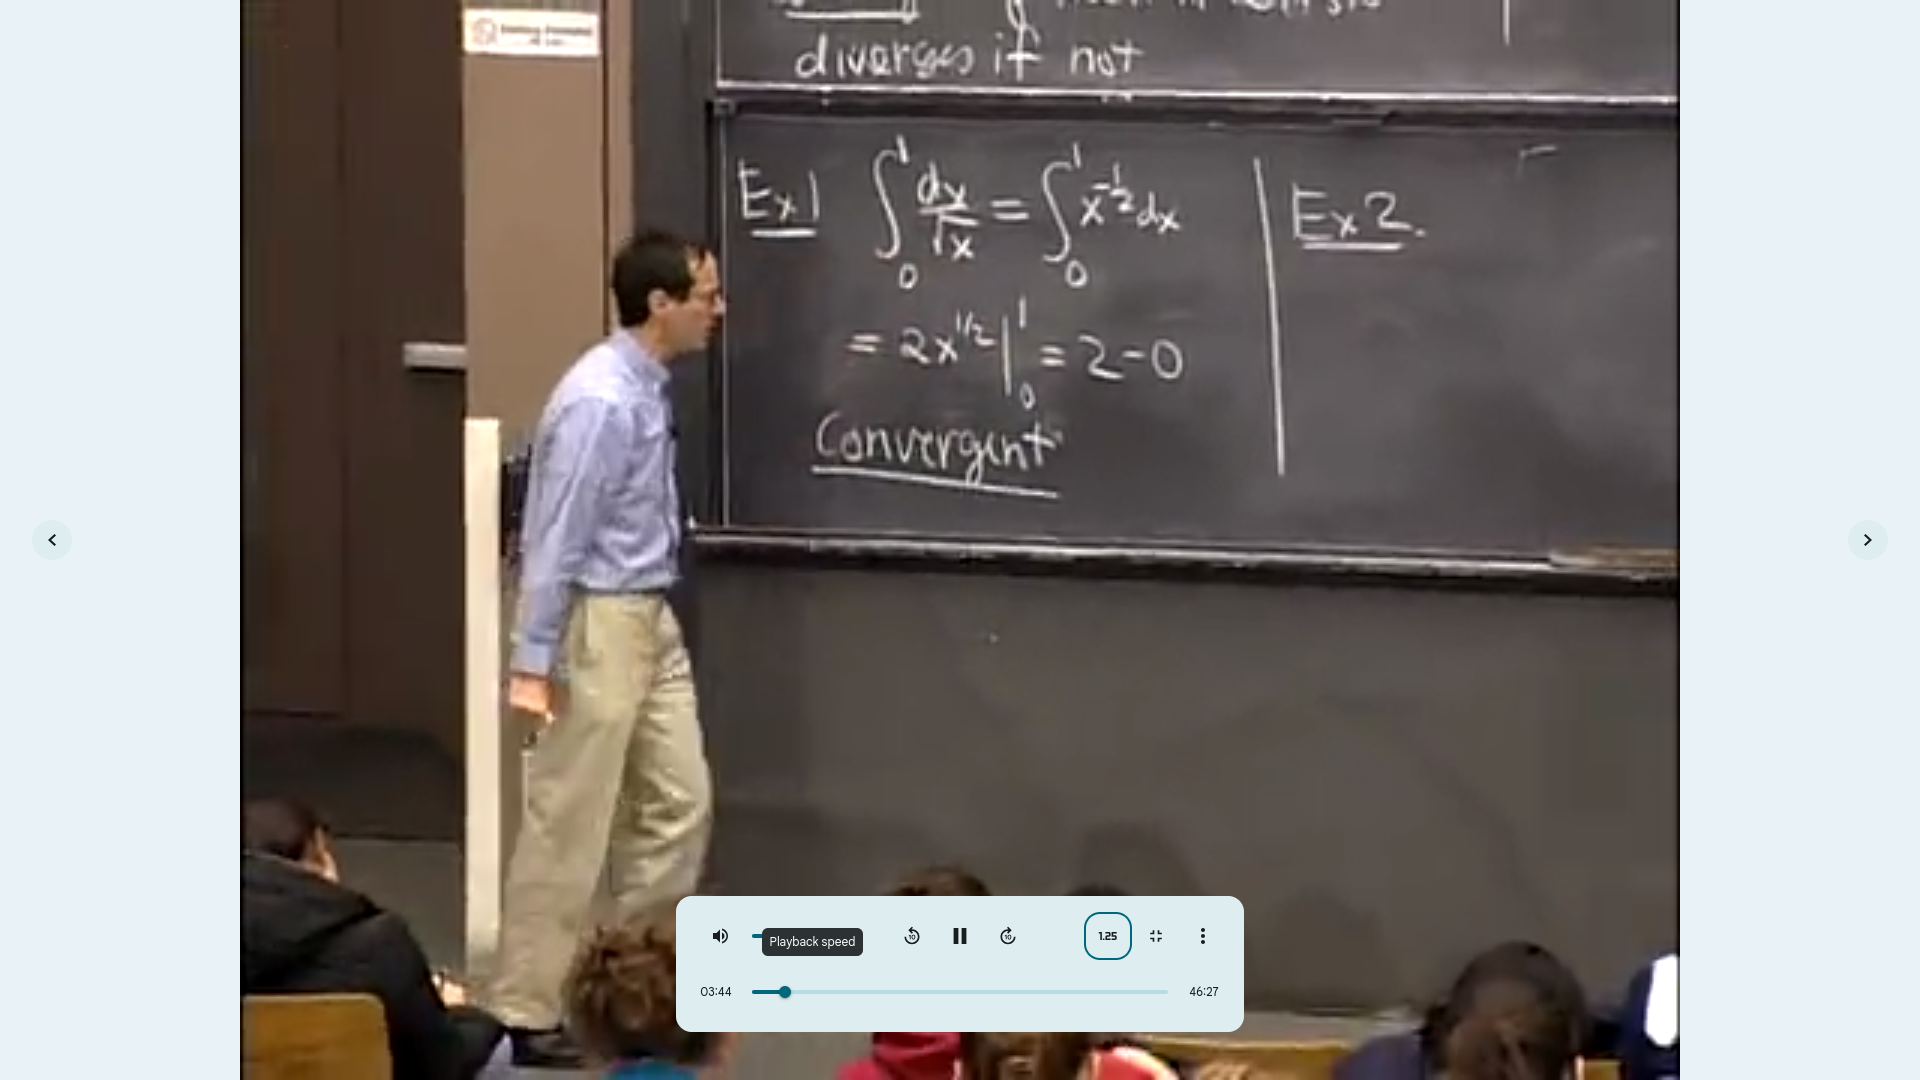 diverges if not
Ex1 ∫₀¹ dx/√x = ∫₀¹ x^(-1/2) dx
= 2x^(1/2) |₀¹ = 2-0
Convergent
Ex 2.
Playback speed
10
10
1.25
03:44
46:27